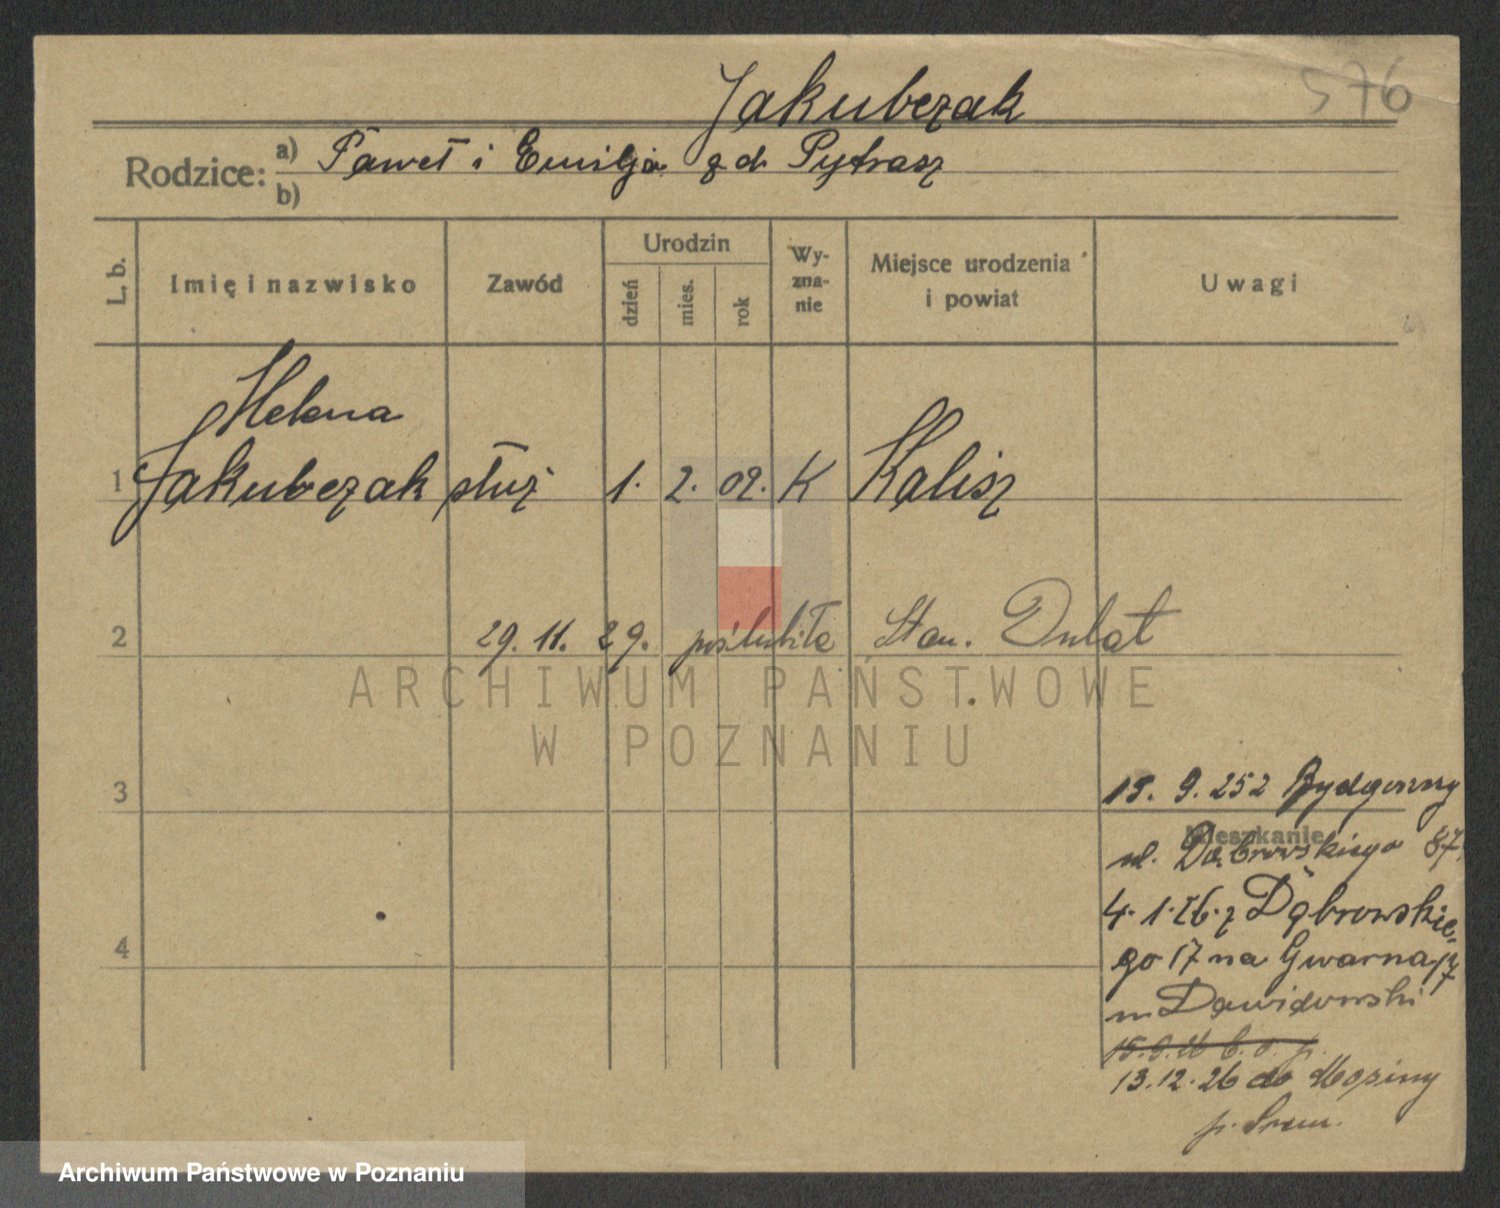 Jakubczak
576
Rodzice: a) Paweł i Emilja z d. Pytrasz
b)
L. b.
Imię i nazwisko
Zawód
Urodzin
dzień
mies.
rok
Wy-
zna-
nie
Miejsce urodzenia
i powiat
Uwagi
Helena
1 Jakubczak służ 1. 2. 09. K Kalisz
2 29. 11. 29. poślubiła Stan. Dubat
ARCHIWUM PAŃSTWOWE
W POZNANIU
3
18. 9. 252 Bydgoszczy
Mieszkanie
ul. Dąbrowskiego 87
4. 1. 26. z Dąbrowskie-
go 17 na Gwarna 17
4
m Dawidowski
13. 12. 26 do Mosiny
p. Śrem.
Archiwum Państwowe w Poznaniu